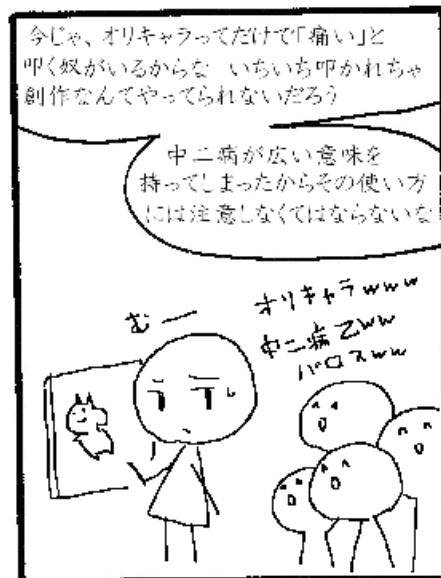 今じゃ、オリキャラってだけで「痛い」と
叩く奴がいるからな いちいち叩かれちゃ
創作なんてやってられないだろう
中二病が広い意味を
持ってしまったからその使い方
には注意しなくてはならないな
むー
オリキャラwww
中二病乙ww
バロスww